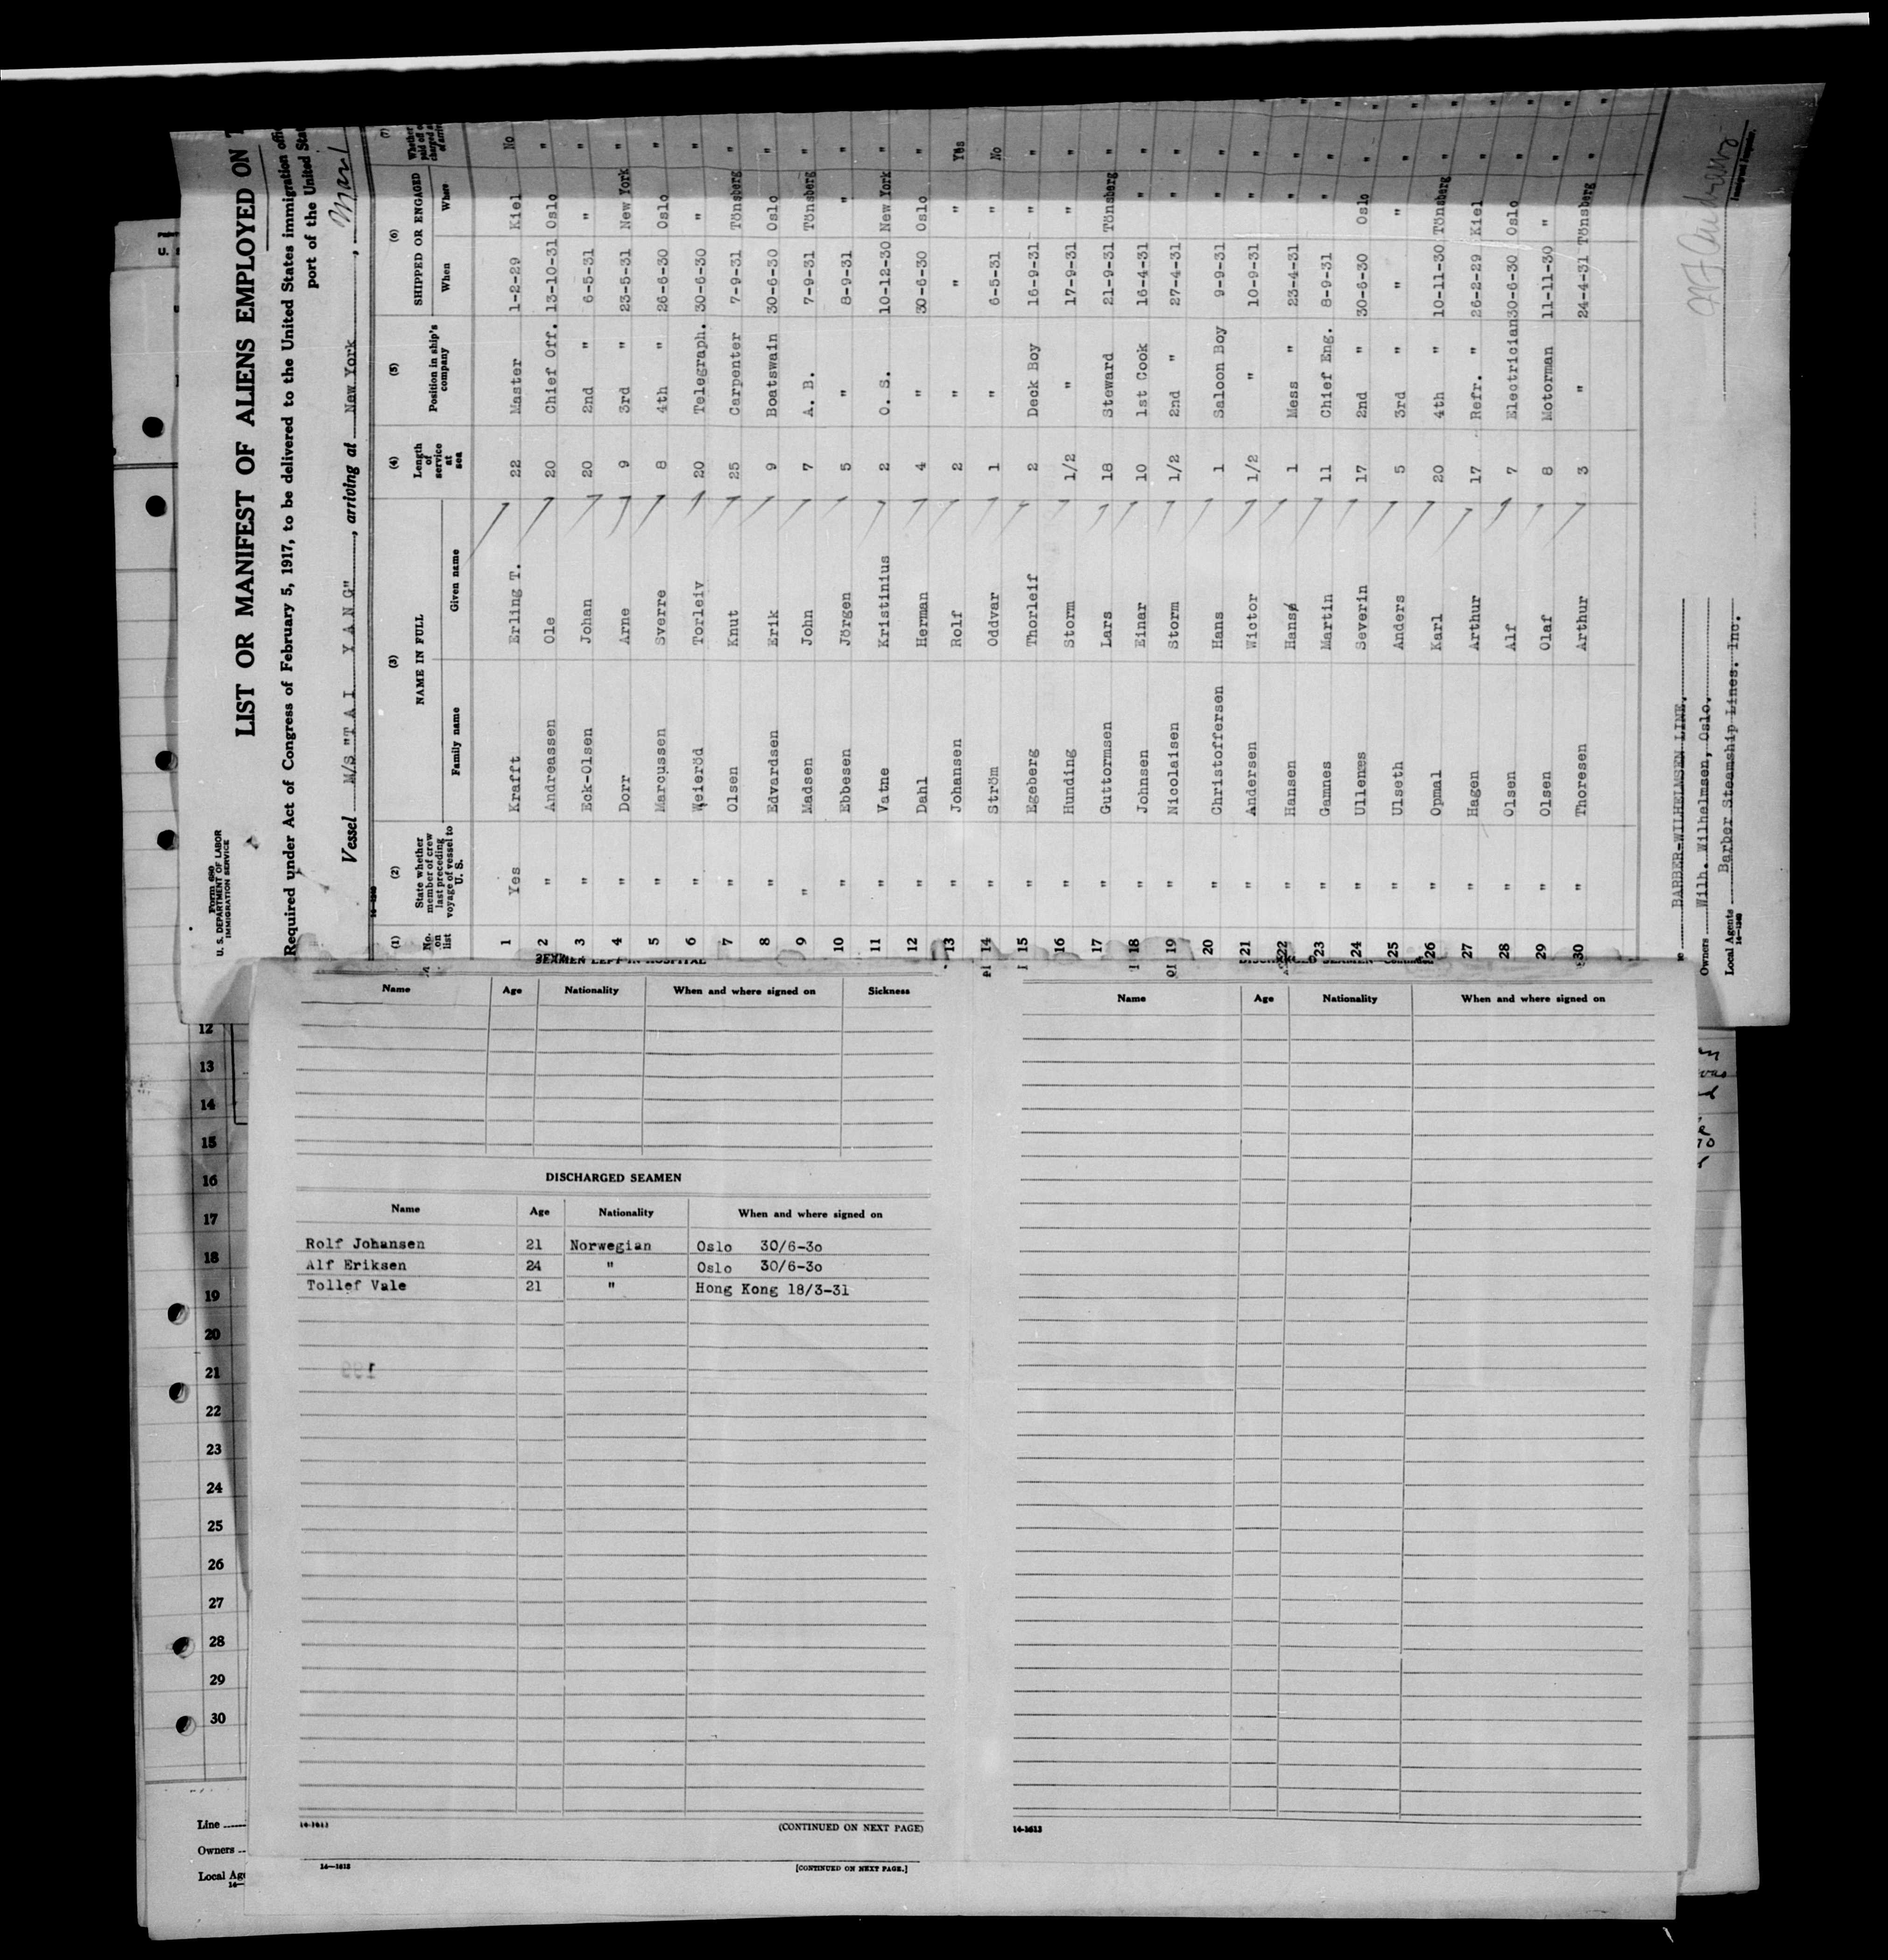 Form 680
U. S. DEPARTMENT OF LABOR
IMMIGRATION SERVICE
LIST OR MANIFEST OF ALIENS EMPLOYED ON
Required under Act of Congress of February 5, 1917, to be delivered to the United States immigration
port of the United
Vessel M/S "T A I Y A N G", arriving at New York,
(1) (2) (3) (4) (5) (6) (7)
No. on list State whether member of crew last preceding voyage of vessel to U. S. NAME IN FULL Length of service at sea Position in ship's company SHIPPED OR ENGAGED
Family name Given name When Where
1 Yes Krafft Erling T. 22 Master 1-2-29 Kiel No
2 " Andreassen Ole 20 Chief Off. 13-10-31 Oslo "
3 " Eck-Olsen Johan 20 2nd " 6-5-31 " "
4 " Dorr Arne 9 3rd " 23-5-31 New York "
5 " Marcussen Sverre 8 4th " 26-6-30 Oslo "
6 " Weieröd Torleiv 20 Telegraph. 30-6-30 " "
7 " Olsen Knut 25 Carpenter 7-9-31 Tönsberg "
8 " Edvardsen Erik 9 Boatswain 30-6-30 Oslo "
9 " Madsen John 7 A. B. 7-9-31 Tönsberg "
10 " Ebbesen Jörgen 5 " 8-9-31 " "
11 " Vatne Kristinius 2 O. S. 10-12-30 New York "
12 " Dahl Herman 4 " 30-6-30 Oslo "
13 " Johansen Rolf 2 " " " Yes
14 " Ström Oddvar 1 " 6-5-31 " No
15 " Egeberg Thorleif 2 Deck Boy 16-9-31 " "
16 " Hunding Storm 1/2 " 17-9-31 " "
17 " Guttormsen Lars 18 Steward 21-9-31 Tönsberg "
18 " Johnsen Einar 10 1st Cook 16-4-31 " "
19 " Nicolaisen Storm 1/2 2nd " 27-4-31 " "
20 " Christoffersen Hans 1 Saloon Boy 9-9-31 " "
21 " Andersen Wictor 1/2 " 10-9-31 " "
22 " Hansen Hans 1 Mess " 23-4-31 " "
23 " Gamnes Martin 11 Chief Eng. 8-9-31 " "
24 " Ullenes Severin 17 2nd " 30-6-30 Oslo "
25 " Ulseth Anders 5 3rd " " " "
26 " Opmal Karl 20 4th " 10-11-30 Tönsberg "
27 " Hagen Arthur 17 Refr. " 26-2-29 Kiel "
28 " Olsen Alf 7 Electrician 30-6-30 Oslo "
29 " Olsen Olaf 8 Motorman 11-11-30 " "
30 " Thoresen Arthur 3 " 24-4-31 Tönsberg "
BARBER-WILHELMSEN LINE.
Owners Wilh. Wilhelmsen, Oslo.
Local Agents Barber Steamship Lines. Inc.
SEAMEN LEFT IN HOSPITAL
Name Age Nationality When and where signed on Sickness
DISCHARGED SEAMEN
Name Age Nationality When and where signed on
Rolf Johansen 21 Norwegian Oslo 30/6-30
Alf Eriksen 24 " Oslo 30/6-30
Tollef Vale 21 " Hong Kong 18/3-31
14-1613 (CONTINUED ON NEXT PAGE)
14-1613 [CONTINUED ON NEXT PAGE.]
Name Age Nationality When and where signed on
14-1613
12
13
14
15
16
17
18
19
20
21
22
23
24
25
26
27
28
29
30
Line
Owners
Local